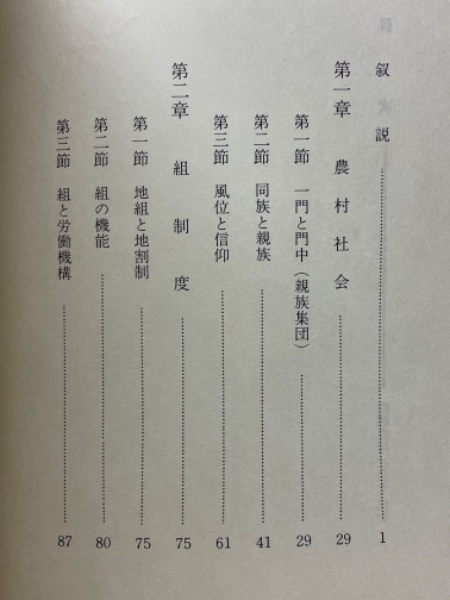 叙説 1
第一章 農村社会 29
第一節 一門と門中(親族集団) 29
第二節 同族と親族 41
第三節 風位と信仰 61
第二章 組制度 75
第一節 地組と地割制 75
第二節 組の機能 80
第三節 組と労働機構 87